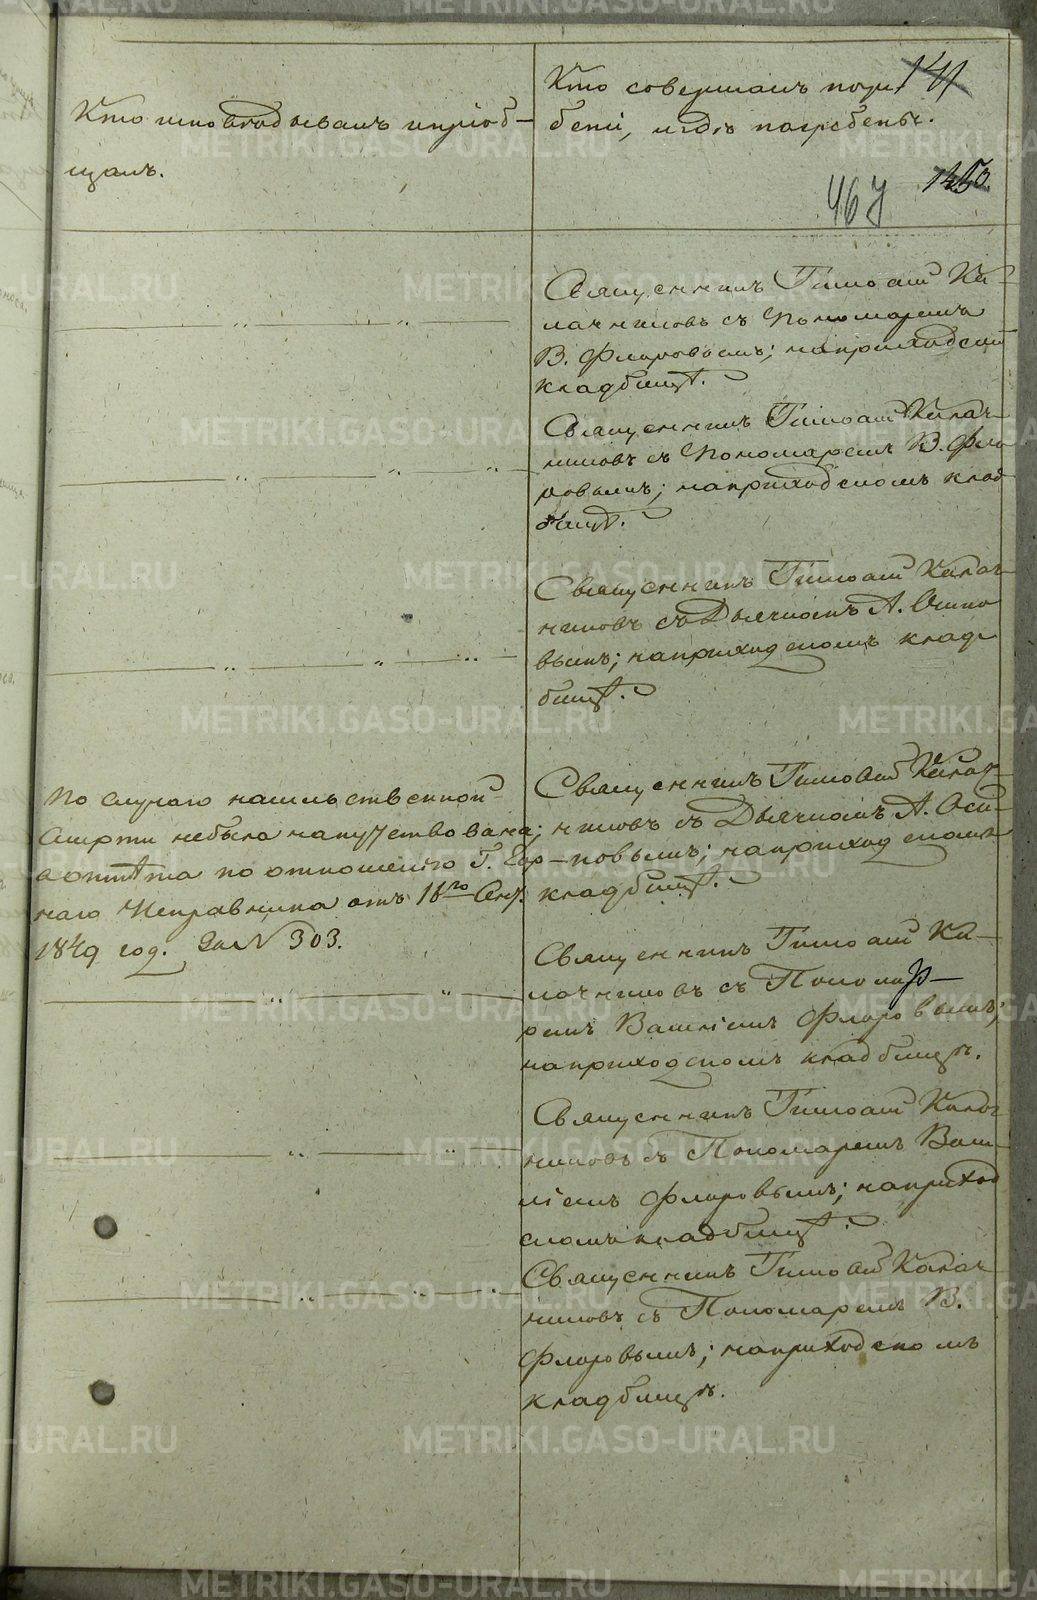 METRIKI.GASO-URAL.RU
Кто исповѣдывалъ и пріоб-
щалъ.
Кто совершалъ погре
беніе, и гдѣ погребены.
141
467
Священникъ Тимоѳей Ка-
лачниковъ съ Пономаремъ
В. Флоровымъ; на приходском
кладбищѣ.
Священникъ Тимоѳей Калач-
никовъ съ Пономаремъ В. Фло
ровымъ; на приходскомъ клад
бищѣ.
Священникъ Тимоѳей Калач-
никовъ съ Дьячкомъ А. Осипо
вымъ; на приходскомъ клад-
бищѣ.
По случаю насильственной
смерти небыла напутствована;
а отпѣта по отношенію Г. Гор-
наго Исправника отъ 16го Сент.
1849 год. За № 303.
Священникъ Тимоѳей Калач-
никовъ съ Дьячкомъ А. Оси-
повымъ; на приходскомъ
кладбищѣ.
Священникъ Тимоѳей Ка-
лачниковъ съ Пономар-
ремъ Василіемъ Флоровымъ;
на приходскомъ кладбищѣ.
Священникъ Тимоѳей Калач-
никовъ съ Пономаремъ Васи-
ліемъ Флоровымъ; на приход
скомъ кладбищѣ.
Священникъ Тимоѳей Калач-
никовъ съ Пономаремъ В.
Флоровымъ; на приходскомъ
кладбищѣ.